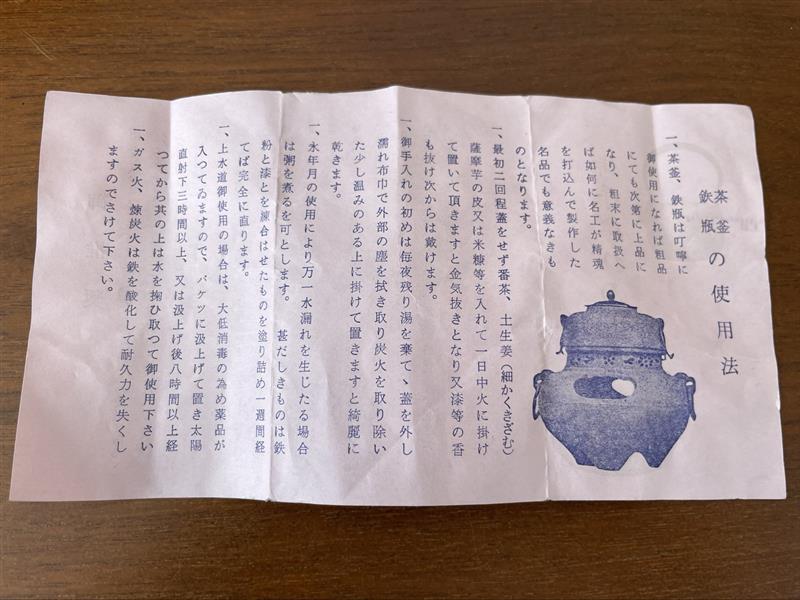 茶釜
鉄瓶 の使用法
一、茶釜、鉄瓶は叮嚀に
御使用になれば粗品
にても次第に上品に
なり、粗末に取扱へ
ば如何に名工が精魂
を打込んで製作した
名品でも意義なきも
のとなります。
一、最初二回程蓋をせず番茶、土生姜(細かくきざむ)
薩摩芋の皮又は米糠等を入れて一日中火に掛け
て置いて頂きますと金気抜きとなり又漆等の香
も抜け次からは戴けます。
一、御手入れの初めは毎夜残り湯を棄てゝ蓋を外し
濡れ布巾で外部の塵を拭き取り炭火を取り除い
た少し温みのある上に掛けて置きますと綺麗に
乾きます。
一、永年月の使用により万一水漏れを生じたる場合
は粥を煮るを可とします。 甚だしきものは鉄
粉と漆とを練合はせたものを塗り詰め一週間経
てば完全に直ります。
一、上水道御使用の場合は、大低消毒の為め薬品が
入つてゐますので、バケツに汲上げて置き太陽
直射下三時間以上、又は汲上げ後八時間以上経
つてから其の上は水を掬ひ取つて御使用下さい
一、ガス火、煉炭火は鉄を酸化して耐久力を失くし
ますのでさけて下さい。